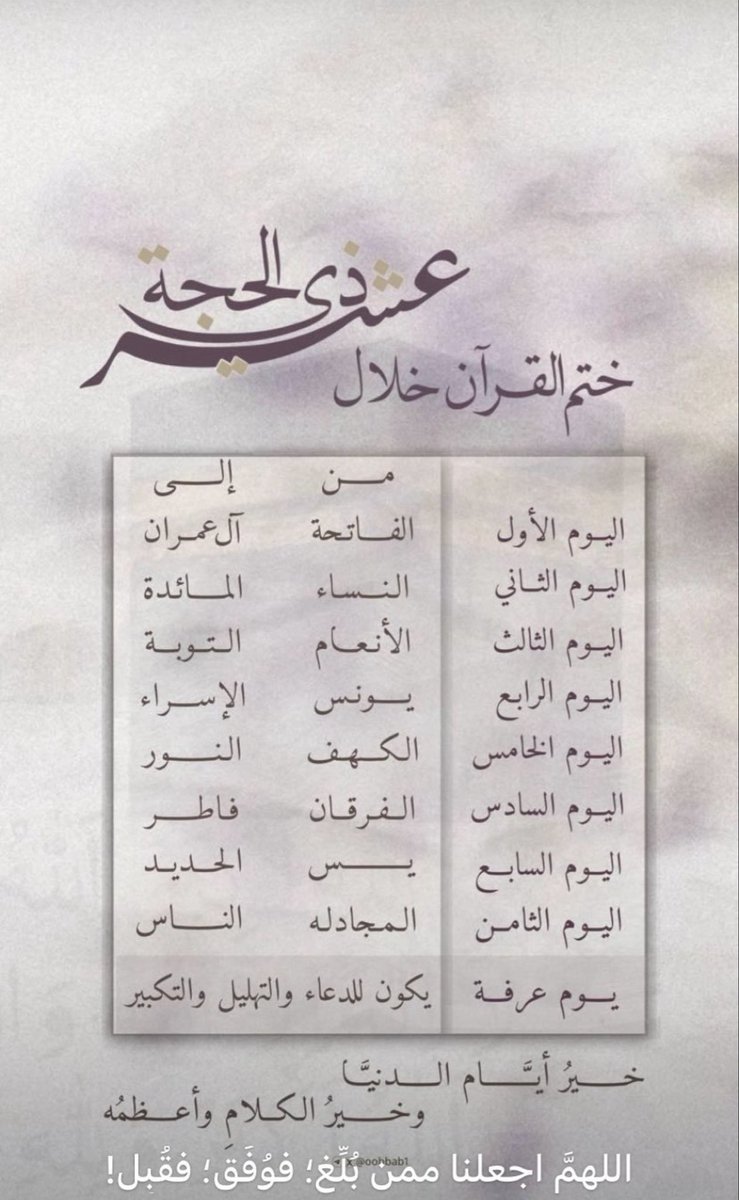 عشر ذي الحجة
ختم القرآن خلال
من إلى
اليوم الأول الفاتحة آل عمران
اليوم الثاني النساء المائدة
اليوم الثالث الأنعام التوبة
اليوم الرابع يونس الإسراء
اليوم الخامس الكهف النور
اليوم السادس الفرقان فاطر
اليوم السابع يس الحديد
اليوم الثامن المجادله الناس
يوم عرفة يكون للدعاء والتهليل والتكبير
خيرُ أيَّام الدنيَّا
وخيرُ الكلامِ وأعظمُه
@oohbab1
اللهمَّ اجعلنا ممن بُلِّغ؛ فوُفَق؛ فقُبل!